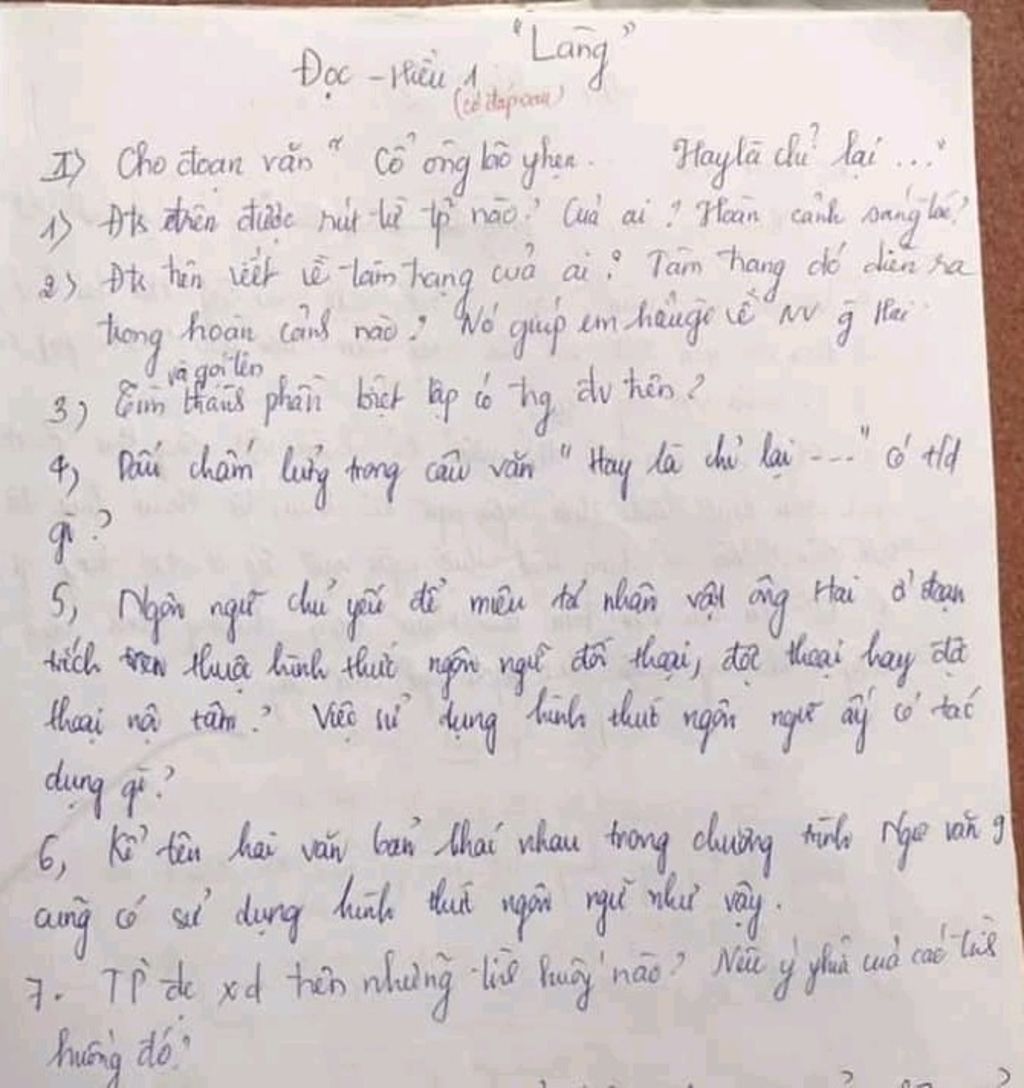 "Làng"
Đọc - Hiểu 1
(có đáp án)
I) Cho đoạn văn " Cổ ông lão nghẹn. Hay là chỉ lại ..."
1) Đts trên được rút từ tp nào? Của ai? Hoàn cảnh sáng tác?
2) Đts trên viết về tâm trạng của ai? Tâm trạng đó diễn ra
trong hoàn cảnh nào? Nó giúp em hiểu gì về NV ô Hai
3) Tìm và gọi tên thành phần biệt lập có tg đv trên?
4, Dấu chấm lửng trong câu văn "Hay là chỉ lại ..." có t/d
gì?
5, Ngôn ngữ chủ yếu để miêu tả nhân vật ông Hai ở đoạn
trích trên thuộc hình thức ngôn ngữ đối thoại, độc thoại hay độc
thoại nội tâm? Việc sử dụng hình thức ngôn ngữ ấy có tác
dụng gì?
6, Kể tên hai văn bản khác nhau trong chương trình Ngữ văn 9
cũng có sử dụng hình thức ngôn ngữ như vậy.
7. TP đc xd trên những tình huống nào? Nêu ý nghĩa của các tình
huống đó?